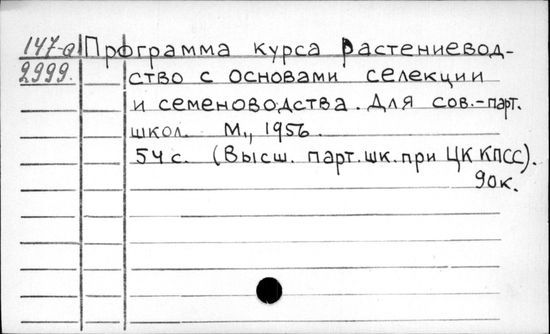 147-а Программа курса растениевод-
2999. ство с основами селекции
и семеноводства. Для сов.-парт.
школ. М., 1956.
54 с. (Высш. парт. шк. при ЦК КПСС).
90к.